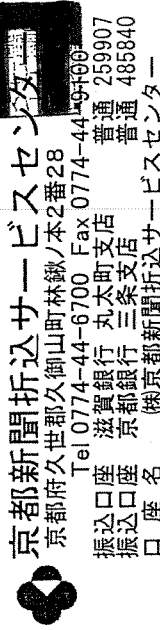 京都新聞折込サービスセンター
京都府久世郡久御山町林鍬ノ本2番28
Tel 0774-44-6700 Fax 0774-44-9100
振込口座 滋賀銀行 丸太町支店 普通 259907
振込口座 京都銀行 三条支店 普通 485840
口座名 ㈱京都新聞折込サービスセンター